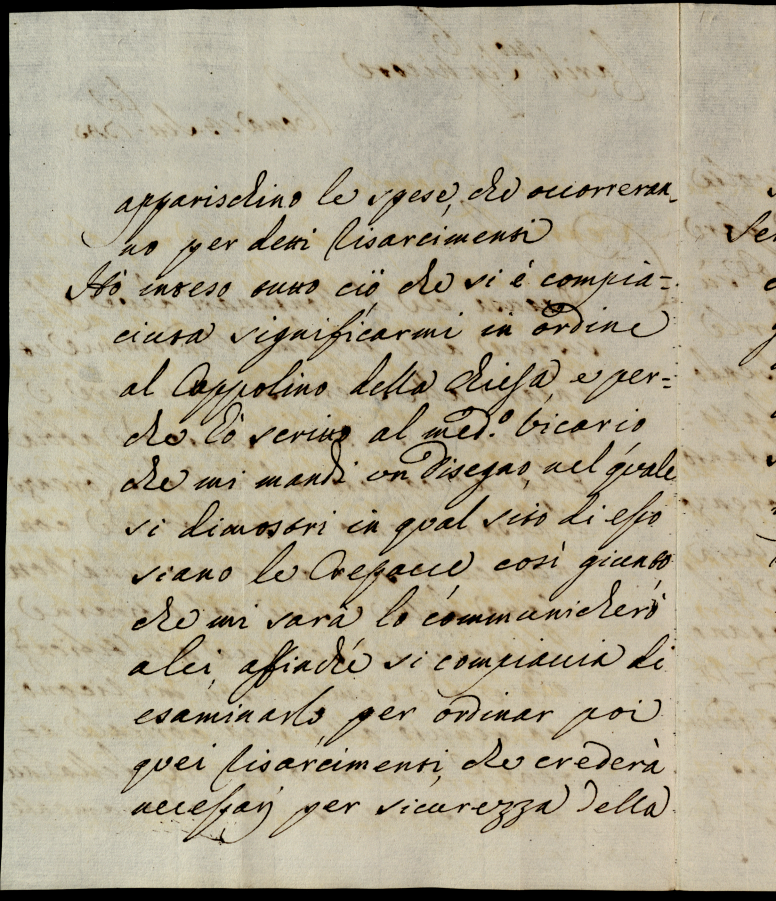 apparischino le spese, che occorreran_
no per detti Risarcimenti
Hò inteso tutto ciò che si è compia=
ciuta significarmi in ordine
al Cuppolino della Chiesa e per=
che Io scrivo al med.º Vicario
che mi mandi un Disegno, nel quale
si dimostri in qual sito di esso
siano le Crepacce così giunto
che mi sarà lo communicherò
a lei, affinche si compiaccia di
esaminarlo per ordinar poi
quei Risarcimenti, che crederà
necessarj per sicurezza della